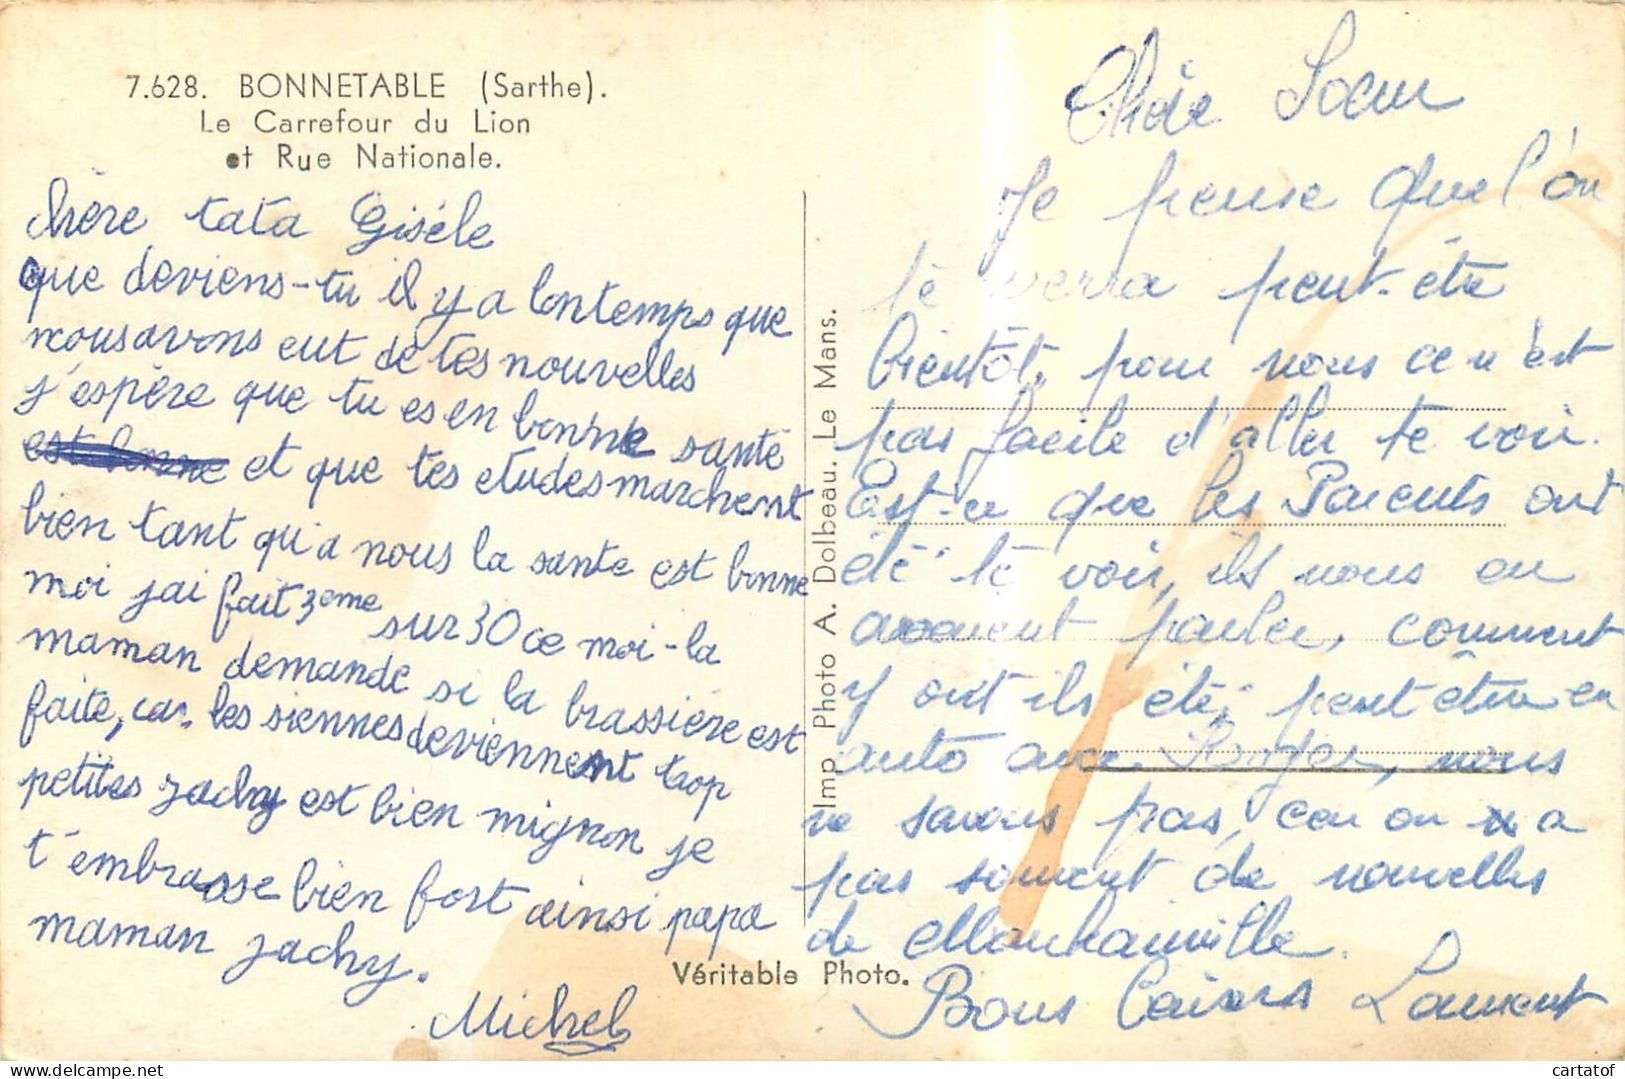 7.628. BONNETABLE (Sarthe).
Le Carrefour du Lion
et Rue Nationale.
Chère tata Gisèle
que deviens-tu il y a lontemps que
nous avons eut de tes nouvelles
j'espère que tu es en bonne santé
est bonne et que tes etudes marchent
bien tant qu'a nous la sante est bonne
moi jai fait 3eme sur 30 ce moi-la
maman demande si la brassière est
faite, car les siennes deviennent trop
petites jacky est bien mignon je
t'embrasse bien fort ainsi papa
maman jacky.
Michel
Imp. Photo A. Dolbeau. Le Mans.
Véritable Photo.
Chère Soeur
Je pense que l'on
te verra peut-être
bientôt, pour nous ce n'est
pas facile d'aller te voir.
Est-ce que les Parents ont
été te voir, ils nous en
avaient parler, comment
y ont ils été, peut être en
auto avec Roger, nous
ne savons pas, car on n'a
pas souvent de nouvelles
de
Bons baisers Laurent
cartatof